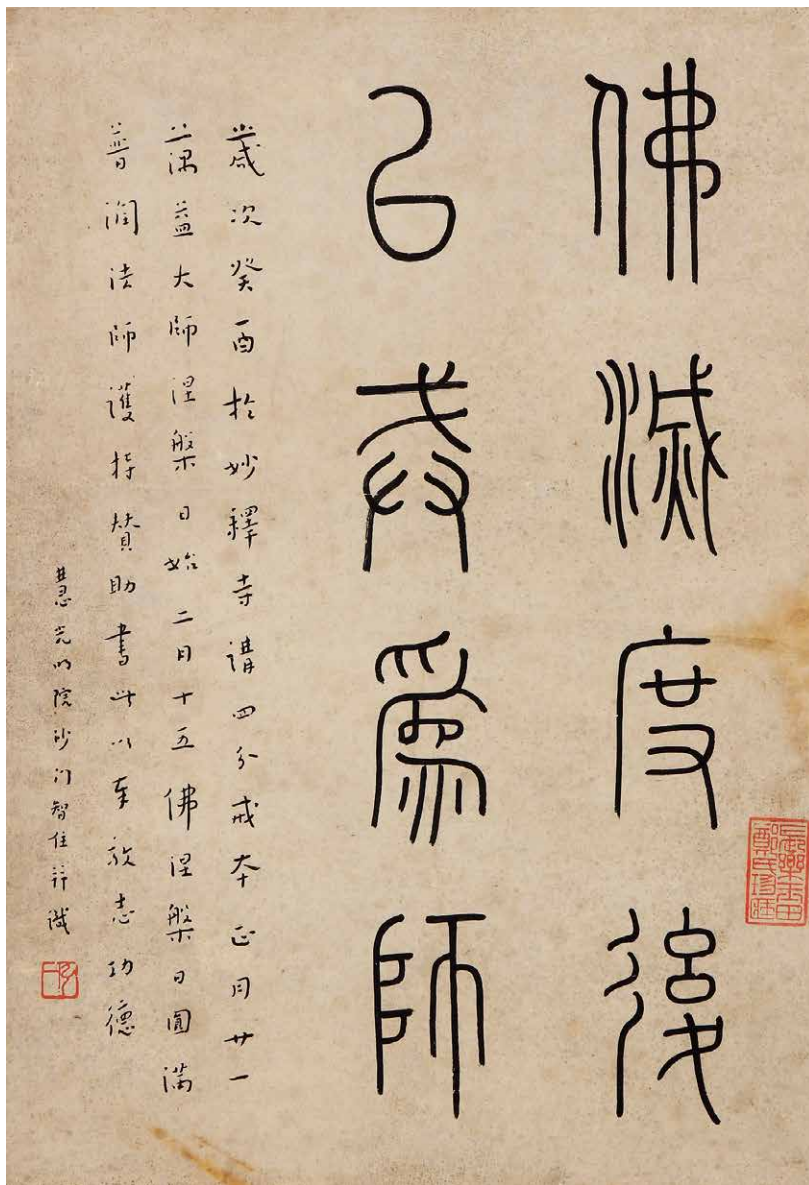 佛滅度後
以戒爲師
歲次癸酉於妙釋寺講四分戒本正月廿一
蕅益大師涅槃日始二月十五佛涅槃日圓滿
普潤法師護持贊助書此以奉敬志功德
慧光明院沙门智住并識